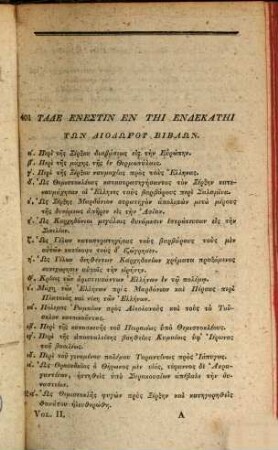 ΤΑΔΕ ΕΝΕΣΤΙΝ ΕΝ ΤΗΙ ΕΝΔΕΚΑΤΗΙ
ΤΩΝ ΔΙΟΔΩΡΟΥ ΒΙΒΛΩΝ.
α'. Περὶ τῆς Ξέρξου διαβάσεως εἰς τὴν Εὐρώπην.
β'. Περὶ τῆς μάχης τῆς ἐν Θερμοπύλαις.
γ'. Περὶ τῆς Ξέρξου ναυμαχίας πρὸς τοὺς Ἕλληνας.
δ'. Ὡς Θεμιστοκλέους καταστρατηγήσαντος τὸν Ξέρξην κατε-
ναυμάχησαν οἱ Ἕλληνες τοὺς βαρβάρους περὶ Σαλαμῖνα.
ε'. Ὡς Ξέρξης Μαρδόνιον στρατηγὸν ἀπολιπὼν μετὰ μέρους
τῆς δυνάμεως ἀπῆρεν εἰς τὴν Ἀσίαν.
ς'. Ὡς Καρχηδόνιοι μεγάλαις δυνάμεσιν ἐστράτευσαν εἰς τὴν
Σικελίαν.
ζ'. Ὡς Γέλων καταστρατηγήσας τοὺς βαρβάρους τοὺς μὲν
αὐτῶν κατέκοψε τοὺς δ' ἐζώγρησεν.
η'. Ὡς Γέλων δεηθέντων Καρχηδονίων χρήματα πραξάμενος
συνεχώρησεν αὐτοῖς τὴν εἰρήνην.
θ'. Κρίσις τῶν ἀριστευσάντων Ἑλλήνων ἐν τῷ πολέμῳ.
ι'. Μάχη τῶν Ἑλλήνων πρὸς Μαρδόνιον καὶ Πέρσας περὶ
Πλαταιὰς καὶ νίκη τῶν Ἑλλήνων.
ια'. Πόλεμος Ῥωμαίοις πρὸς Αἰκολανοὺς καὶ τοὺς τὸ Τοῦ-
σκλον κατοικοῦντας.
ιβ'. Περὶ τῆς κατασκευῆς τοῦ Πειραιέως ὑπὸ Θεμιστοκλέους.
ιγ'. Περὶ τῆς ἀποσταλείσης βοηθείας Κυμαίοις ὑφ' Ἱέρωνος
τοῦ βασιλέως.
ιδ'. Περὶ τοῦ γενομένου πολέμου Ταραντίνοις πρὸς Ἰάπυγας.
ιε'. Ὡς Θρασυδαῖος ὁ Θήρωνος μὲν υἱὸς, τύραννος δ' Ἀκρα-
γαντίνων, ἡττηθεὶς ὑπὸ Συρακουσίων ἀπέβαλε τὴν δυ-
ναστείαν.
ις'. Ὡς Θεμιστοκλῆς φυγὼν πρὸς Ξέρξην καὶ κατηγορηθεὶς
θανάτου ἠλευθερώθη.
VOL. II. A